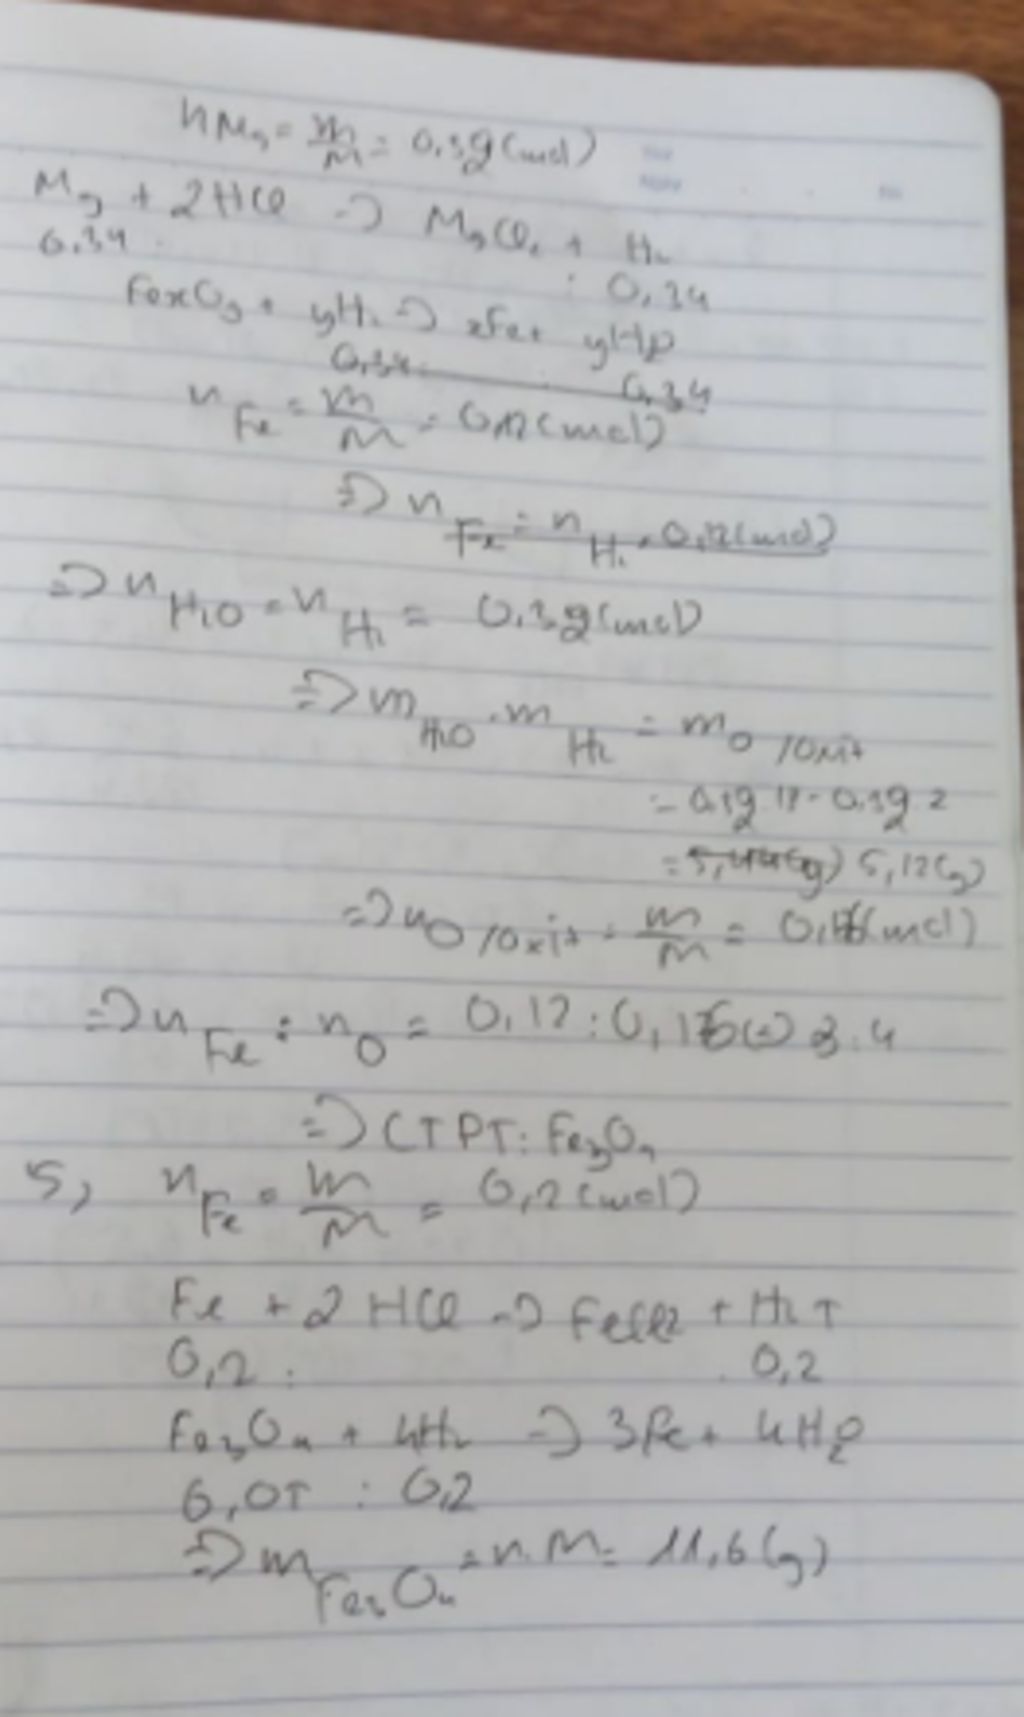 nMg = m/M = 0,3g (mol)
Mg + 2HCl -> MgCl2 + H2
0,34 : 0,34
FexOy + yH2 -> xFe + yH2O
0,34 0,34
nFe = m/M = 0,12 (mol)
=> nFe = nH2 = 0,12 (mol)
=> nH2O = nH2 = 0,3g (mol)
=> mH2O - mH2 = mO/Oxit
= 0,3g 18 - 0,3g 2
= 5,44(g) 5,12(g)
=> nO/Oxit = m/M = 0,16 (mol)
=> nFe : nO = 0,12 : 0,16 (=) 3 : 4
=> CTPT: Fe3O4
5, nFe = m/M = 0,2 (mol)
Fe + 2HCl -> FeCl2 + H2↑
0,2 : 0,2
Fe3O4 + 4H2 -> 3Fe + 4H2O
0,05 : 0,2
=> mFe3O4 = n.M = 11,6 (g)